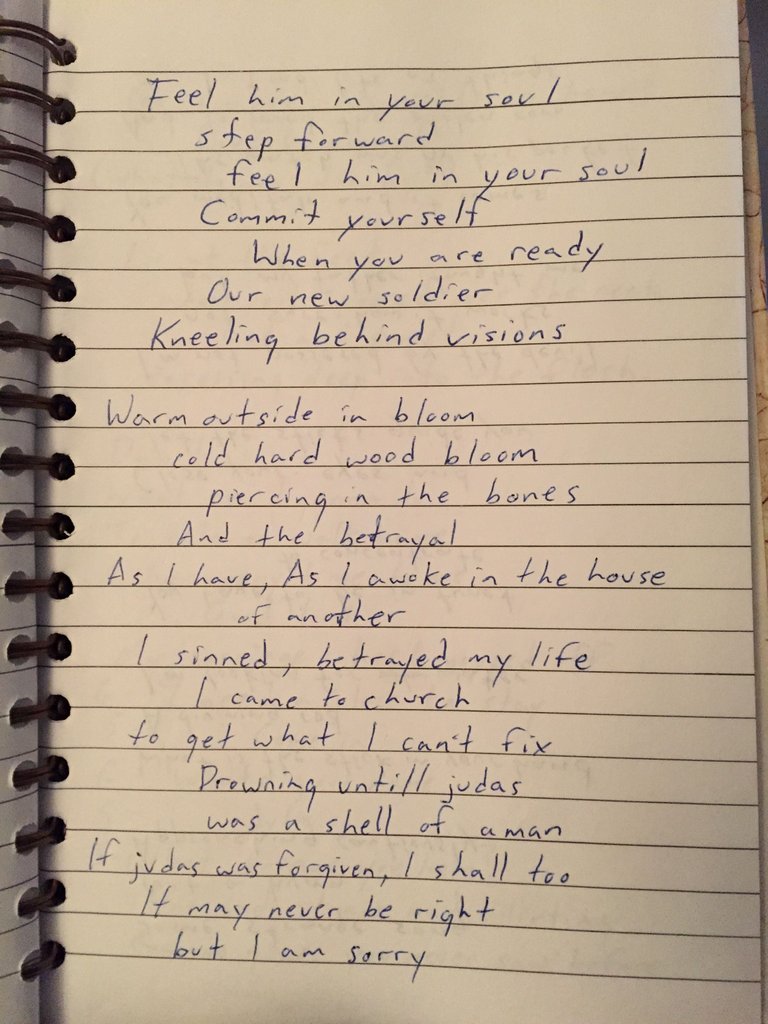 Feel him in your soul
step forward
feel him in your soul
Commit yourself
When you are ready
Our new soldier
Kneeling behind visions
Warm outside in bloom
cold hard wood bloom
piercing in the bones
And the betrayal
As I have, As I awoke in the house
of another
I sinned, betrayed my life
I came to church
to get what I can't fix
Drowning untill judas
was a shell of a man
If judas was forgiven, I shall too
It may never be right
but I am sorry